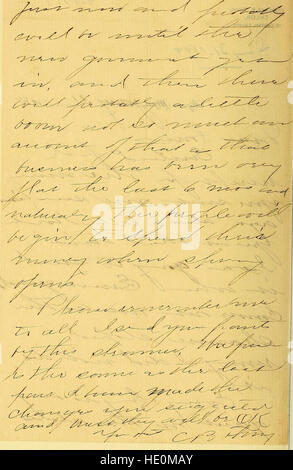 just now and probably
will be until the
new government goes
in, and then there
will probably a little
boom not so much on
account of that as that
business has been very
flat the last 6 mos and
naturally the people will
begin to spend their
money when spring
opens.
Please remember me
to all I send you pants
by this steamer, the price
is the same as the last
pair I have made the
changes you suggested
and trust they will be OK
C B
alamy
Image ID: H0M0AY
www.alamy.com